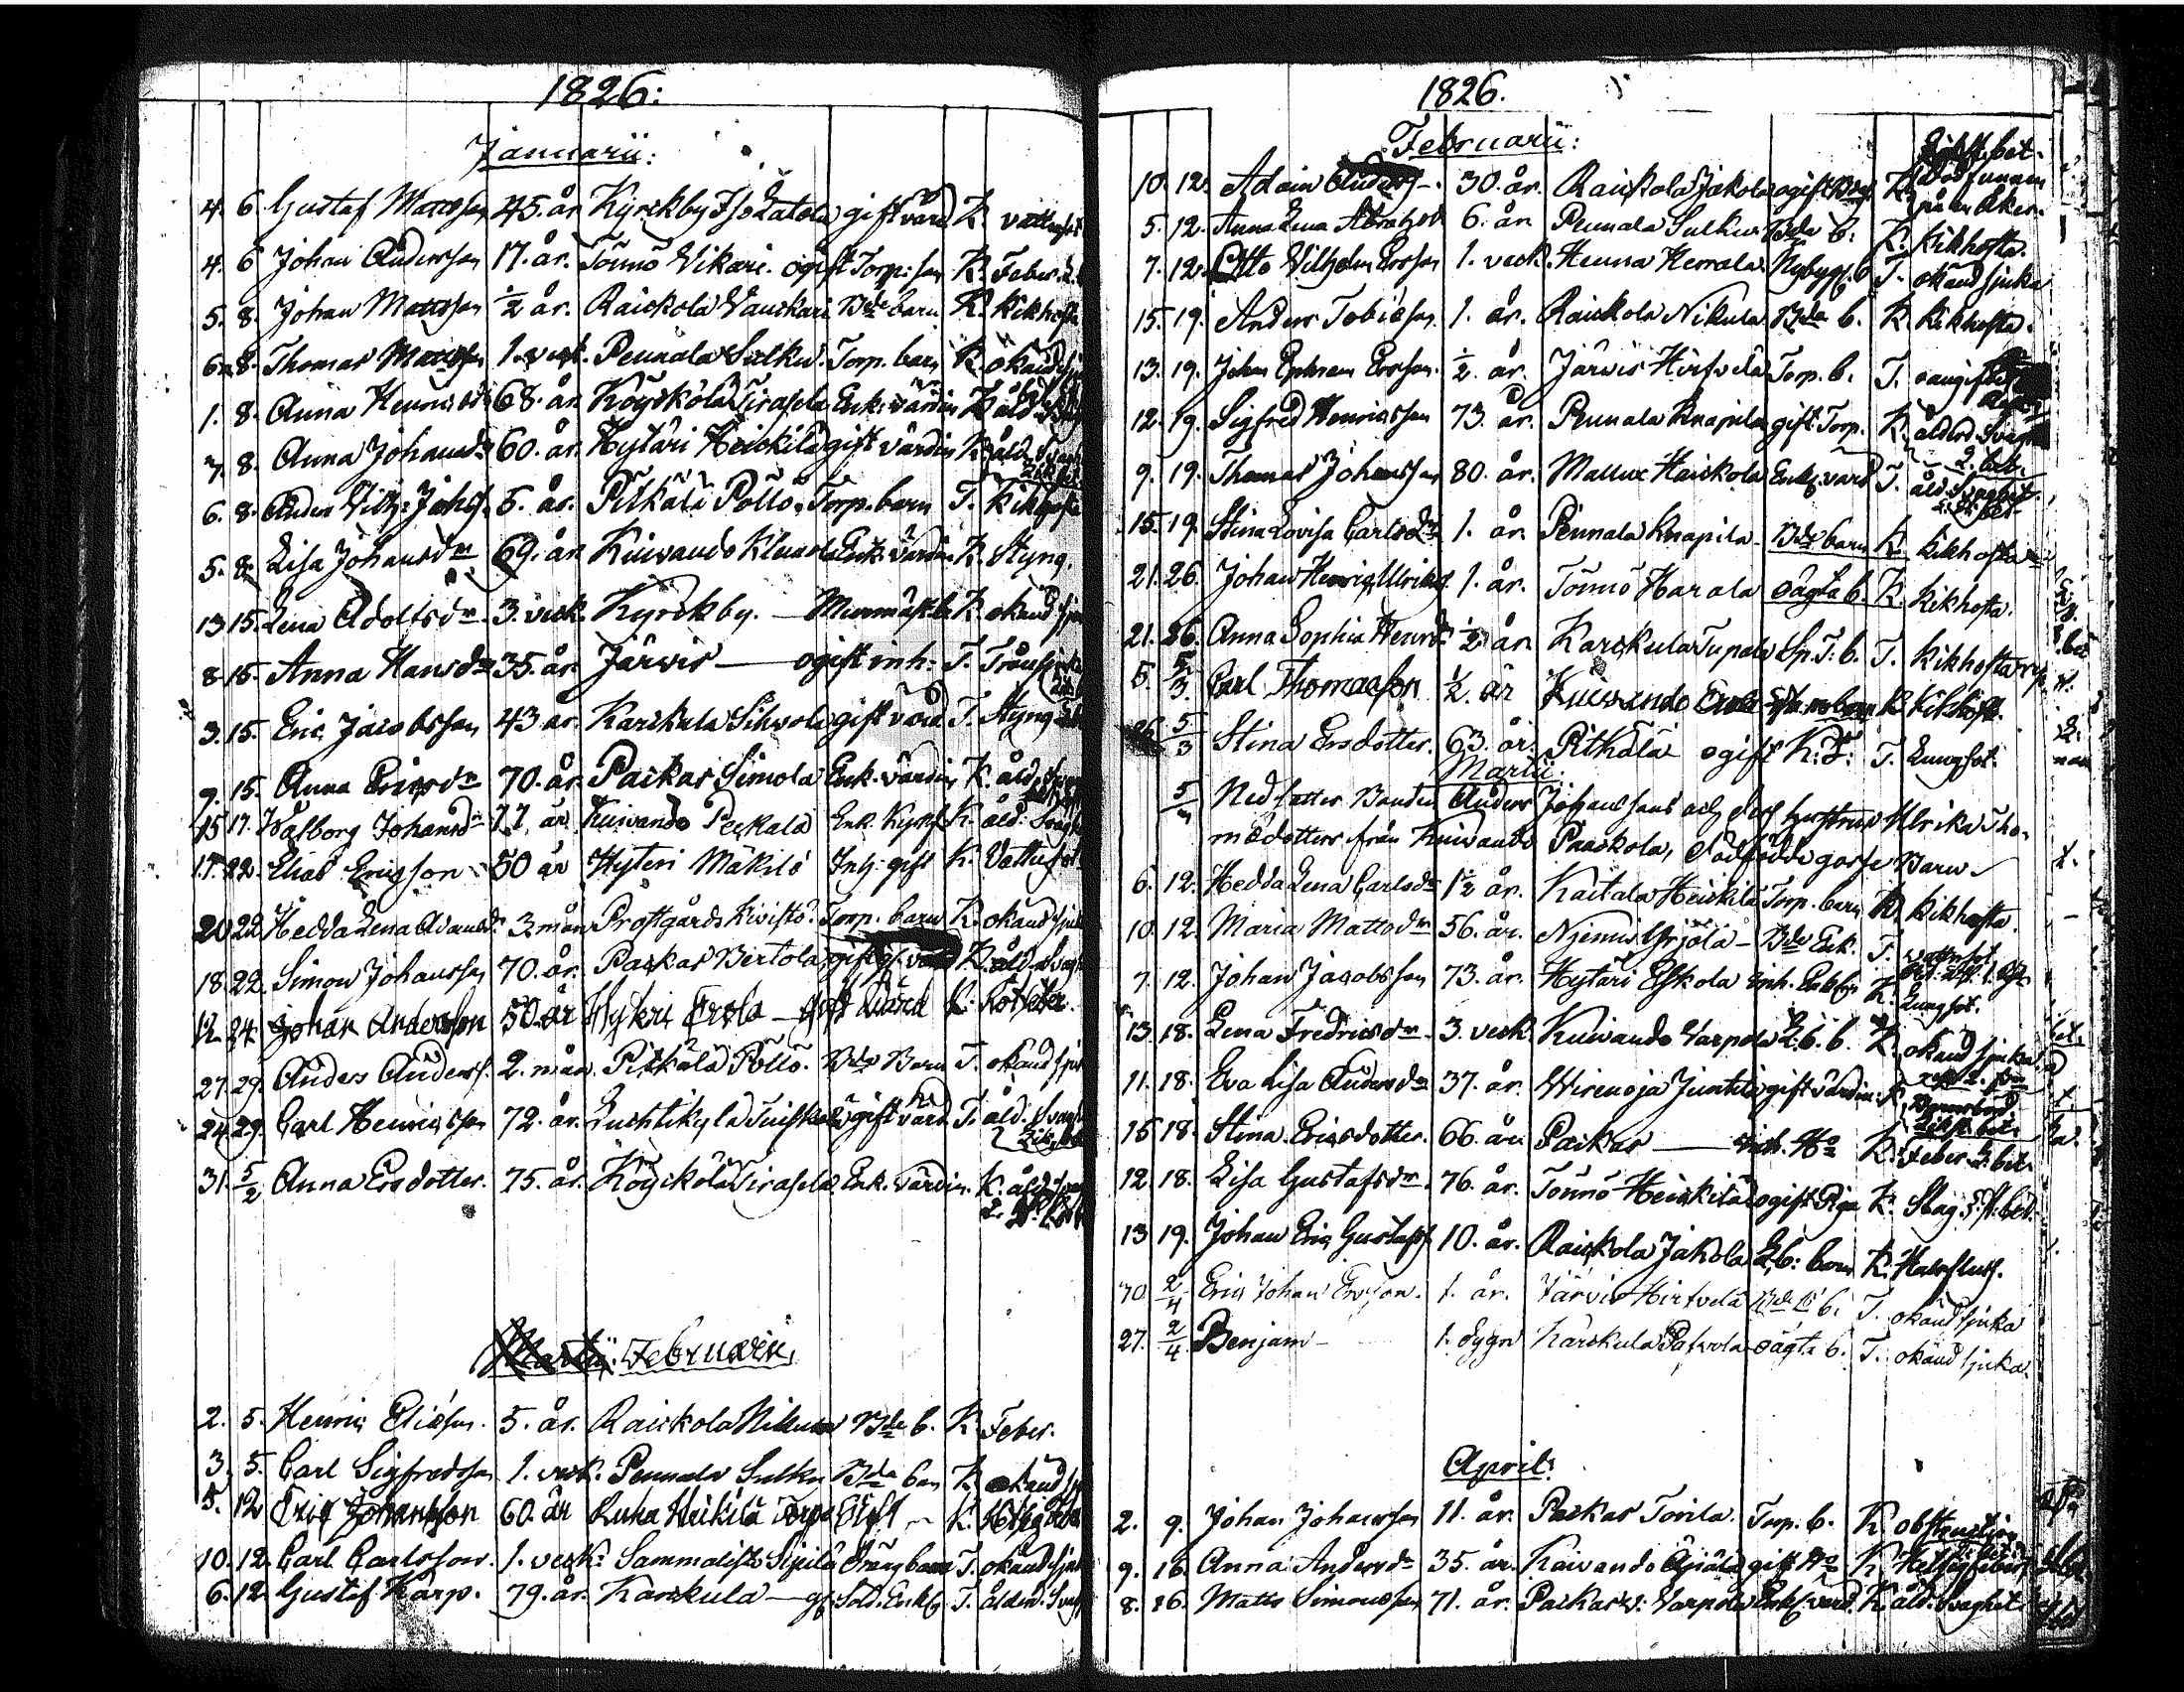 1826:
Januarii:
4. 6. Gustaf Mattsson 45. år Kyrckby Iso Latola gift värd K. vattusot
4. 6 Johan Andersson 17. år. Tönnö Vikari. ogift Torp: son K. Feber.
5. 8. Johan Mattsson ½ år. Raickola Vauckari Bde barn K. Kikhosta
6. 8. Thomas Mattsson 1. veck. Pennala Sulku. Torp. barn K. okänd sju
1. 8. Anna Henricsdr 68. år. Köyckölä Tirasela Enk. värdin K. åld.
7. 8. Anna Johansdr 60. år. Hytäri Heickilä gift värdin K. åld. Svag
6. 8. Ander Vilh: Johss. 5. år. Pitkälä Pöllö. Torp. barn T. Kikhosta
5. 8. Lisa Johansdr 69. år. Kuivando Klemola Enk. värdin K. Styng.
13 15. Lena Adolfsdr 3. veck. Kyrckby. — Murmäst. b. K. okänd sju
8. 15. Anna Hansdr 35. år. Järvis — ogift inh: T. Trånsjuka
3. 15. Eric Jacobsson 43 år. Karckula Sihvola gift värd T. Styng
9. 15. Anna Ericsdr 70. år. Paickas Simola Enk. värdin K. åld. Svag
15 17. Walborg Johansdr 77. år Kuivando Peckala Enk. K. åld. Svagh
17. 22. Elias Ericsson 50 år Hyteri Mäkilö Inh. gift K. Vattusot
20 22. Hedda Lena Adamsdr 3. mån Prostgårds Kivistö. Torp. barn K. okänd sjuk
18. 22. Simon Johansson 70. år. Paickas Bertola gift K. åld. Svagh
12. 24. Johan Andersson 50. år Hyteri Erola — gift Värd K. Rötfeber.
27. 29. Anders Anderss. 2. mån. Pitkälä Pöllö. Bde Barn T. okänd sjuk
24. 29. Carl Henricsson 72. år. Luhtikylä gift värd. T. åld. Svagh
31. 5/2 Anna Ersdotter. 75. år. Köyckölä Tirasela Enk. värdin. K. åld.
Martii. Februarii.
2. 5. Henric Eliasson. 5. år. Raickola Nikula Bde b. K. Feber.
3. 5. Carl Sigfredsson 1. veck. Pennala Sulku Bda barn K. okänd sj
5. 12 Eric Johansson 60. år Luha Heikilä Torp. K.
10. 12. Carl Carlsson. 1. veck. Sammalisto Sipilä Dräng barn T. okänd sjuk
6. 12 Gustaf Karp. 79. år. Karckula — Sold. Enkl. T. ålderd. Svagh
1826.
Februarii:
10. 12. Adam Anderss. 30. år. Raickola Jakola ogift K. Död funnen
på en åker.
5. 12. Anna Lena Abrahdr 6. år. Pennala Sulku Bde b. K. Kikhosta.
7. 12. Otto Vilhelm Ersson 1. veck. Henna Herrala Nybygg. b T. okänd sjuka
15. 19. Anders Tobiasson. 1. år. Raickola Nikula Bde b. K. Kikhosta.
13. 19. Johan Ephraim Ersson. ½. år. Järvis Hirfvelä Torp. b. T. oangifvet
12. 19. Sigfred Henricsson 73. år. Pennala Knapila gift Torp. K. ålderd. Svagh
9. 19. Thomas Johansson 80. år. Mallux Haickola Enkl. värd T. åld. Svaghet.
15. 19. Stina Lovisa Carlsdr 1. år. Pennala Knapila Bde barn K. Kikhosta
21. 26. Johan Henric Ulricass. 1. år. Tönnö Harala oägta b. K. Kikhosta.
21. 26. Anna Sophia Henrdr ½ år. Karckula Tupala Sp. T. b. T. Kikhosta
5. 5/3 Carl Thomasson ½. år Kuivando Erola barn K Kikhosta.
26 5/3 Stina Ersdotter. 63. år. Pitkälä ogift K: T. Lungsot.
Martii:
5/m Nedsattes Bonden Anders Johanssons och dess hustrus Ulrika Tho-
masdotters från Kuivando Paackola, dödfödde gosse Barn
6. 12. Hedda Lena Carlsdr 1½ år. Kaitala Heickilä Torp. barn K. Kikhosta.
10. 12. Maria Mattsdr 56. år. Niemis Yrjölä — Bde Enk. T. vattusot
7. 12. Johan Jacobsson 73. år. Hytäri Eskola inh. Enkl. K. Lungsot.
13. 18. Lena Fredricsdr 3. veck. Kuivando Varpola b. K. okänd sjuka
11. 18. Eva Lisa Andersdr 37. år. Wirenoja Junttila gift värdin. K. Barnsbörd
15 18. Stina Ericsdotter. 66. år. Paickas — inh. Ha K. Feber
12. 18. Lisa Gustafsdr 76. år. Tönnö Heickilä ogift Piga K. Slag.
13 19. Johan Eric Gustafss. 10. år. Raickola Jakola barn K. Halsfluss.
2/4 Eric Johan Ersson. 1. år. Järvis Hirfvelä b. T. okänd sjuka
27. 2/4 Benjam — 1. dygn Karckula oägta b. T. okänd sjuka.
April:
2. 9. Johan Johansson 11. år. Paickas Torp. b. K. obstruction
9. 16. Anna Andersdr 35. år. Kuivando gift K. Hetsig feber
8. 16. Matts Simonsson 71. år. Paickas v: Varpola Enkl. värd. K. åld. Svaghet